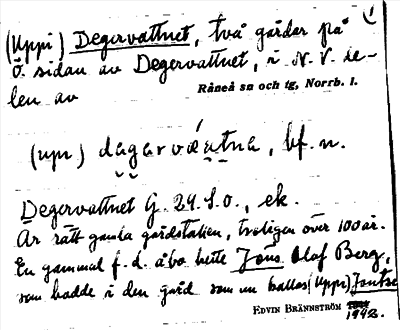 (Uppi) Degervattnet, två gårdar på
Ö. sidan av Degervattnet, i N.V. de-
len av
Råneå sn och tg, Norrb. l.
(upi) dagarvǽatna, bf. n.
Degervattnet G. 29. S.O., ek.
Är rätt gamla gårdställen, troligen över 100 år.
En gammal f.d. åbo hette Jöns Olof Berg,
som hadde i den gård som nu kallas (Uppi) Jontse
EDVIN BRÄNNSTRÖM
1942.